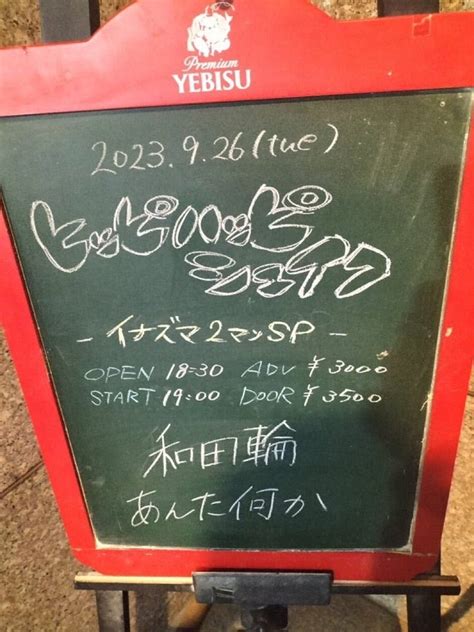 Premium
YEBISU
2023.9.26(tue)
ヒッピハッピ
シェイク
- イナズマ2マンSP -
OPEN 18:30 ADV ¥3000
START 19:00 DOOR ¥3500
和田輪
あんた何か